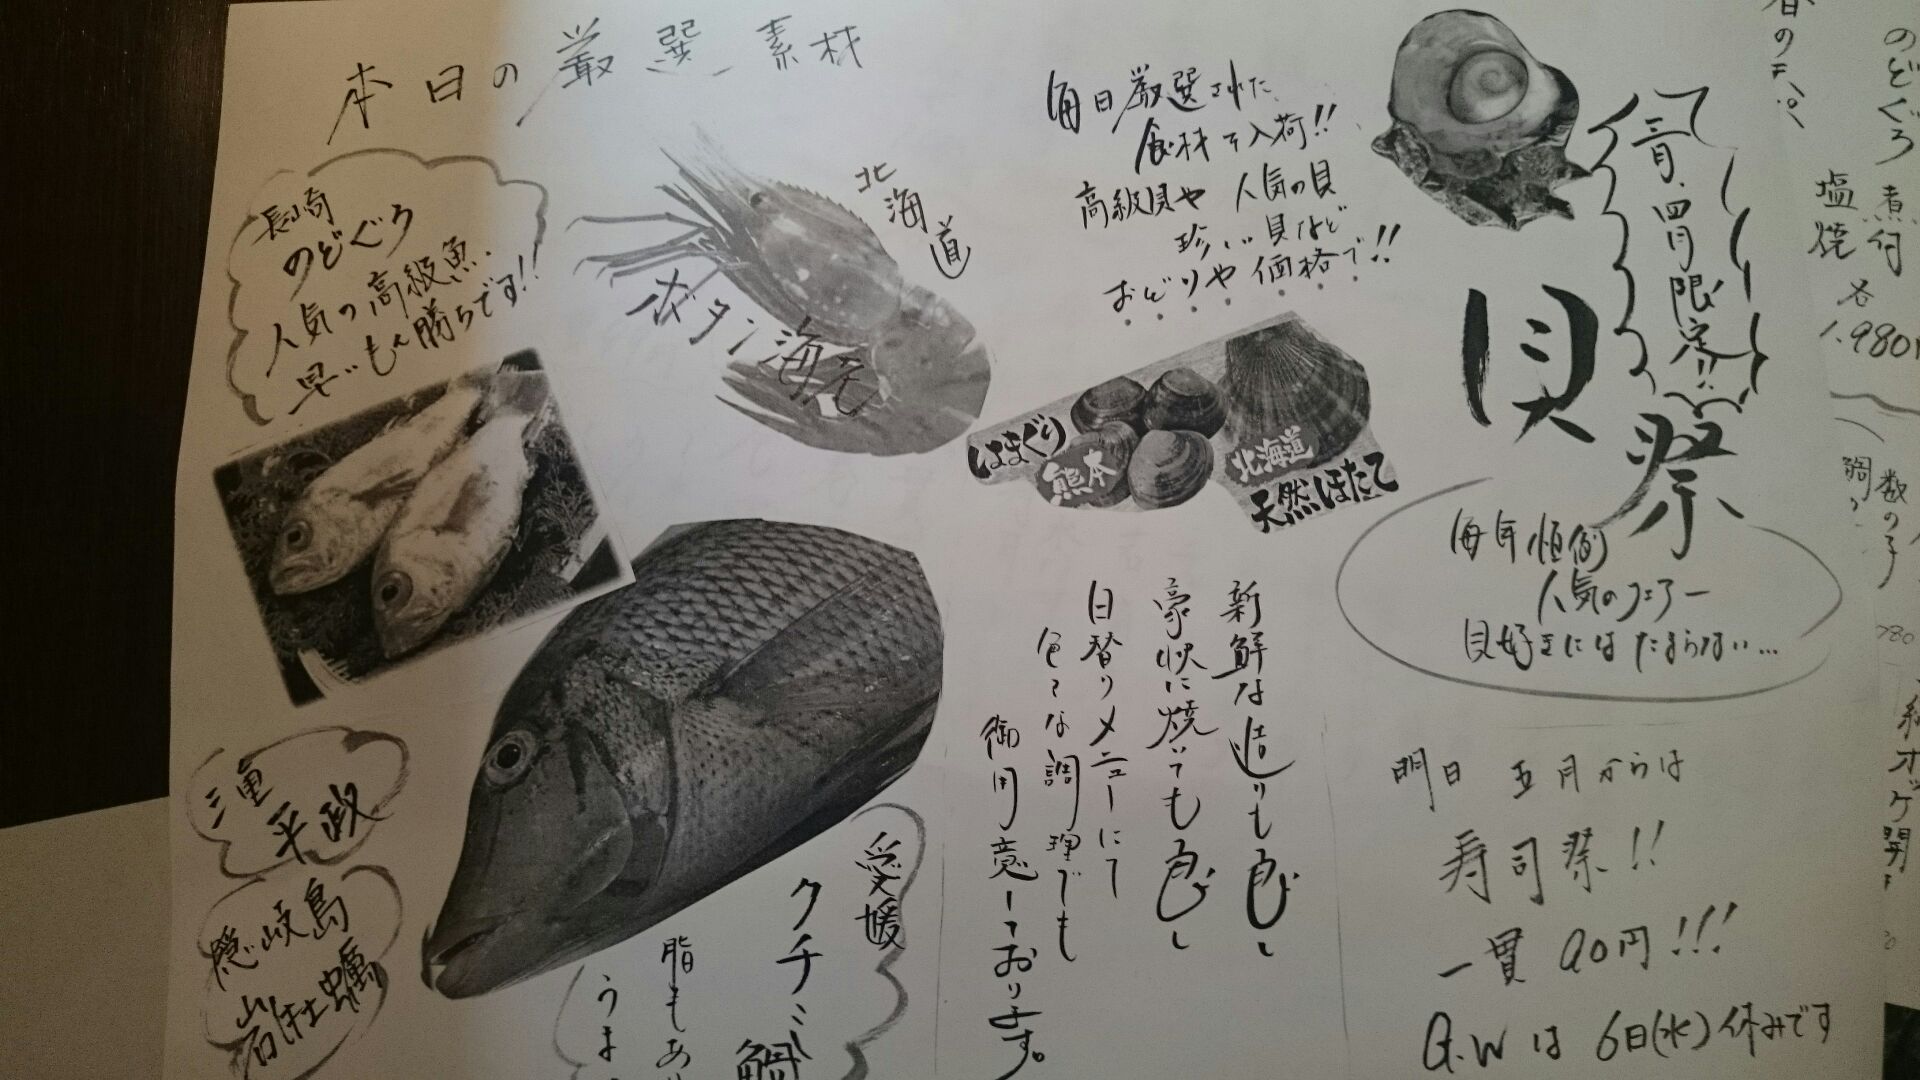 本日の厳選素材
長崎
のどぐろ
人気の高級魚.
早いもん勝ちです!!
北海道
ボタン海老
毎日厳選された
食材を入荷!!
高級貝や人気の貝
珍しい貝など
おどりや価格で!!
はまぐり
熊本
北海道
天然ほたて
三月、四月限定!!
貝祭
毎年恒例
人気のフェアー
貝好きにはたまらない…
新鮮な造りも良し
豪快に焼いても良し
日替りメニューにて
色々な調理でも
御用意しております。
三重
平政
隠岐島
岩牡蠣
愛媛
クチミ鯛
脂もあ
うま
明日 五月からは
寿司祭!!
一貫 90円!!!
G.Wは6日(水)休みです
のどぐろ 煮付
塩焼
各
1.980
数の子
780